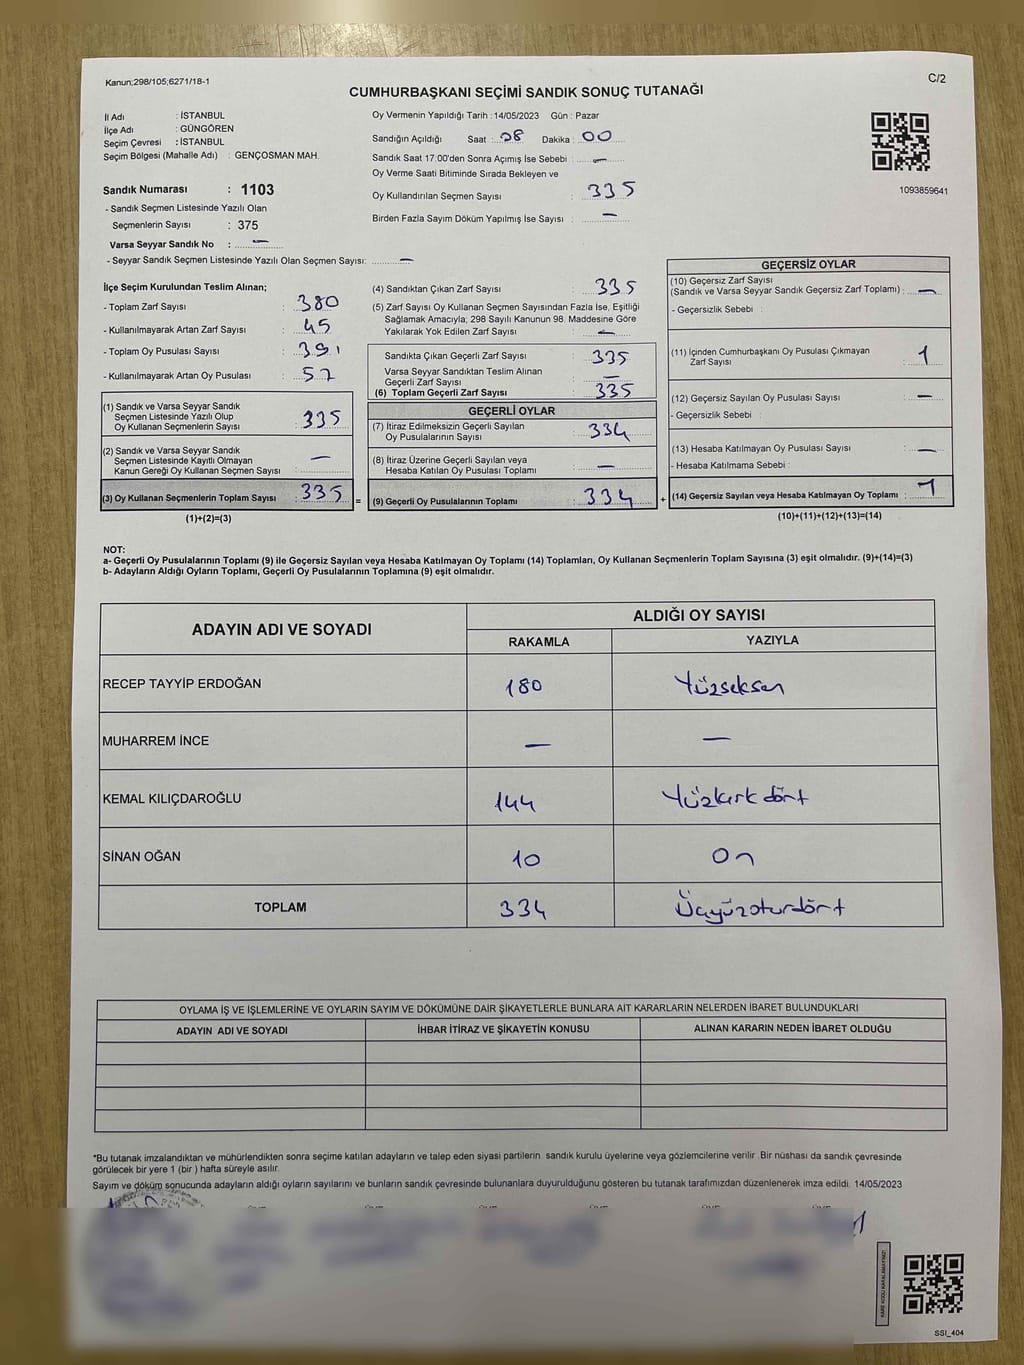 Kanun;298/105;6271/18-1
C/2
CUMHURBAŞKANI SEÇİMİ SANDIK SONUÇ TUTANAĞI
İl Adı : İSTANBUL
İlçe Adı : GÜNGÖREN
Seçim Çevresi : İSTANBUL
Seçim Bölgesi (Mahalle Adı) : GENÇOSMAN MAH.
Sandık Numarası : 1103
- Sandık Seçmen Listesinde Yazılı Olan
Seçmenlerin Sayısı : 375
Varsa Seyyar Sandık No : —
- Seyyar Sandık Seçmen Listesinde Yazılı Olan Seçmen Sayısı: —
Oy Vermenin Yapıldığı Tarih : 14/05/2023 Gün : Pazar
Sandığın Açıldığı Saat : 08 Dakika : 00
Sandık Saat 17:00'den Sonra Açımış İse Sebebi : —
Oy Verme Saati Bitiminde Sırada Bekleyen ve
Oy Kullandırılan Seçmen Sayısı : 335
Birden Fazla Sayım Döküm Yapılmış İse Sayısı : —
1093859641
İlçe Seçim Kurulundan Teslim Alınan;
- Toplam Zarf Sayısı : 380
- Kullanılmayarak Artan Zarf Sayısı : 45
- Toplam Oy Pusulası Sayısı : 391
- Kullanılmayarak Artan Oy Pusulası : 57
(1) Sandık ve Varsa Seyyar Sandık
Seçmen Listesinde Yazılı Olup
Oy Kullanan Seçmenlerin Sayısı : 335
(2) Sandık ve Varsa Seyyar Sandık
Seçmen Listesinde Kayıtlı Olmayan
Kanun Gereği Oy Kullanan Seçmen Sayısı : —
(3) Oy Kullanan Seçmenlerin Toplam Sayısı : 335 =
(1)+(2)=(3)
(4) Sandıktan Çıkan Zarf Sayısı : 335
(5) Zarf Sayısı Oy Kullanan Seçmen Sayısından Fazla İse, Eşitliği
Sağlamak Amacıyla; 298 Sayılı Kanunun 98. Maddesine Göre
Yakılarak Yok Edilen Zarf Sayısı : —
Sandıkta Çıkan Geçerli Zarf Sayısı : 335
Varsa Seyyar Sandıktan Teslim Alınan
Geçerli Zarf Sayısı : —
(6) Toplam Geçerli Zarf Sayısı : 335
GEÇERLİ OYLAR
(7) İtiraz Edilmeksizin Geçerli Sayılan
Oy Pusulalarının Sayısı : 334
(8) İtiraz Üzerine Geçerli Sayılan veya
Hesaba Katılan Oy Pusulası Toplamı : —
(9) Geçerli Oy Pusulalarının Toplamı : 334 +
GEÇERSİZ OYLAR
(10) Geçersiz Zarf Sayısı
(Sandık ve Varsa Seyyar Sandık Geçersiz Zarf Toplamı) : —
- Geçersizlik Sebebi :
(11) İçinden Cumhurbaşkanı Oy Pusulası Çıkmayan
Zarf Sayısı : 1
(12) Geçersiz Sayılan Oy Pusulası Sayısı : —
- Geçersizlik Sebebi :
(13) Hesaba Katılmayan Oy Pusulası Sayısı : —
- Hesaba Katılmama Sebebi :
(14) Geçersiz Sayılan veya Hesaba Katılmayan Oy Toplamı : 1
(10)+(11)+(12)+(13)=(14)
NOT:
a- Geçerli Oy Pusulalarının Toplamı (9) ile Geçersiz Sayılan veya Hesaba Katılmayan Oy Toplamı (14) Toplamları, Oy Kullanan Seçmenlerin Toplam Sayısına (3) eşit olmalıdır. (9)+(14)=(3)
b- Adayların Aldığı Oyların Toplamı, Geçerli Oy Pusulalarının Toplamına (9) eşit olmalıdır.
ADAYIN ADI VE SOYADI
ALDIĞI OY SAYISI
RAKAMLA YAZIYLA
RECEP TAYYİP ERDOĞAN 180 Yüzseksen
MUHARREM İNCE — —
KEMAL KILIÇDAROĞLU 144 Yüzkırk dört
SİNAN OĞAN 10 On
TOPLAM 334 Üçyüzoturdört
OYLAMA İŞ VE İŞLEMLERİNE VE OYLARIN SAYIM VE DÖKÜMÜNE DAİR ŞİKAYETLERLE BUNLARA AİT KARARLARIN NELERDEN İBARET BULUNDUKLARI
ADAYIN ADI VE SOYADI İHBAR İTİRAZ VE ŞİKAYETİN KONUSU ALINAN KARARIN NEDEN İBARET OLDUĞU
*Bu tutanak imzalandıktan ve mühürlendikten sonra seçime katılan adayların ve talep eden siyasi partilerin sandık kurulu üyelerine veya gözlemcilerine verilir .Bir nüshası da sandık çevresinde
görülecek bir yere 1 (bir ) hafta süreyle asılır.
Sayım ve döküm sonucunda adayların aldığı oyların sayılarını ve bunların sandık çevresinde bulunanlara duyurulduğunu gösteren bu tutanak tarafımızdan düzenlenerek imza edildi. 14/05/2023
KARE KODU KARALAMAYINIZ!
SSI_404